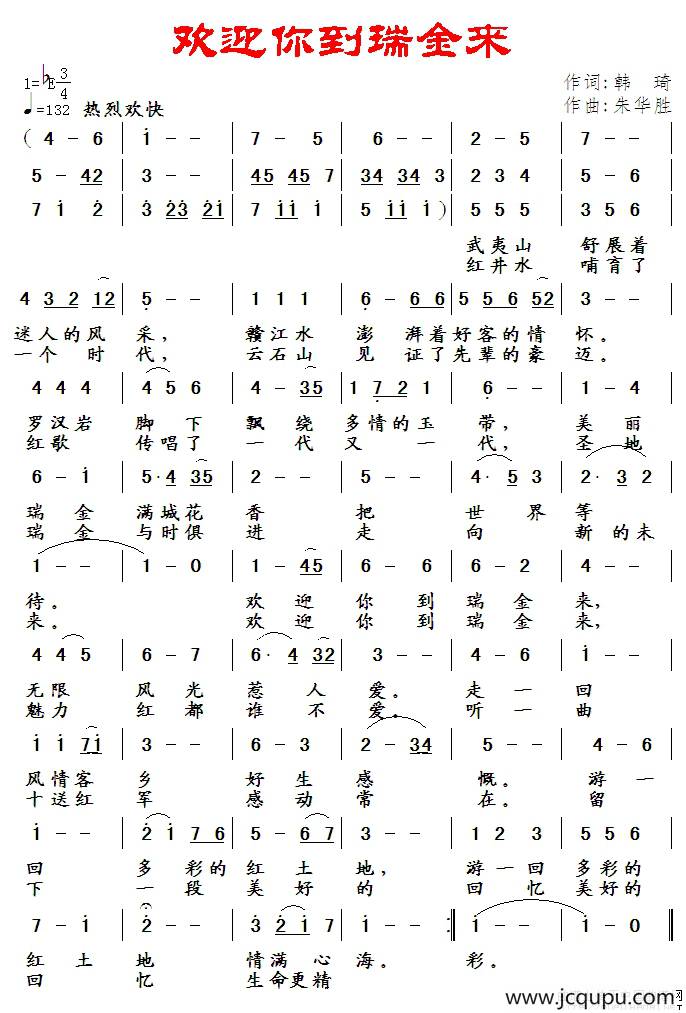 欢迎你到瑞金来
1=♭E 3/4
♩=132 热烈欢快
作词:韩 琦
作曲:朱华胜
( 4 - 6 | i - - | 7 - 5 | 6 - - | 2 - 5 | 7 - - |
5 - 42 | 3 - - | 45 45 7 | 34 34 3 | 2 3 4 | 5 - 6 |
7 i 2 | 3 23 21 | 7 ii i | 5 ii i ) | 5 5 5 | 3 5 6 |
武夷山 舒展着
红井水 哺育了
4 32 12 | 5 - - | 1 1 1 | 6 - 66 | 55 6 52 | 3 - - |
迷人的风 采, 赣江水 澎 湃着好客的情 怀。
一个 时 代, 云石山 见 证了先辈的豪 迈。
4 4 4 | 4 5 6 | 4 - 35 | 1 72 1 | 6 - - | 1 - 4 |
罗汉岩 脚 下 飘绕 多情的玉 带, 美 丽
红歌 传唱了 一代 又 一 代, 圣地
6 - i | 5· 4 35 | 2 - - | 5 - - | 4· 5 3 | 2· 3 2 |
瑞 金 满城花 香 把 世 界 等
瑞 金 与时俱 进 走 向 新 的未
1 - - | 1 - 0 | 1 - 45 | 6 - 6 | 6 - 2 | 4 - - |
待。 欢 迎 你 到 瑞 金 来,
来。 欢 迎 你 到 瑞 金 来,
4 4 5 | 6 - 7 | 6· 4 32 | 3 - - | 4 - 6 | i - - |
无限 风 光 惹 人 爱。 走 一 回
魅力 红 都 谁 不 爱。 听 一 曲
i i 7i | 3 - - | 6 - 3 | 2 - 34 | 5 - - | 4 - 6 |
风情客 乡 好 生 感 慨。 游 一
十送红 军 感 动 常 在。 留
i - - | 2i 76 | 5 - 67 | 3 - - | 1 2 3 | 5 5 6 |
回 多 彩的 红 土 地, 游一回 多彩的
下 一段 美 好 的 回 忆 美好的
7 - i | 2 - - | 3 2i 7 | i - - :| i - - | i - 0 ‖
红 土 地 情满 心 海。 彩。
回 忆 生命更精
www.jcqupu.com